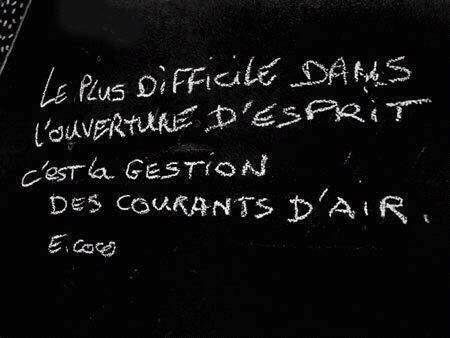 LE PLUS DIFFICILE DANS
L'OUVERTURE D'ESPRIT
C'EST LA GESTION
DES COURANTS D'AIR.
E. COCO